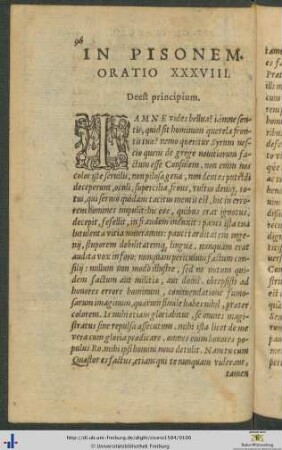 96
IN PISONEM.
ORATIO XXXVIII.
Deest principium.
IAMNE vides bellua? iamne sen-
tis, quæ sit hominum querela fron-
tis tuæ? nemo queritur Syrum nes-
cio quem de grege novitiorum fa-
ctum esse Consulem. non enim nos
color iste servilis, non pilosæ genæ, non dentes putridi
deceperunt. oculi, supercilia, frons, vultus denique to-
tus, qui sermo quidam tacitus mentis est, hic in er-
rorem homines impulit: hic eos, quibus erat ignotus,
decepit, fefellit, in fraudem induxit: pauci ista tua
lutulenta vitia noveramus: pauci tarditatem inge-
nij, stuporem debilitatemq. linguæ. nunquam erat
audita vox in foro: nunquam periculum factum con-
silij: nullum non modo illustre, sed ne notum qui-
dem factum aut militiæ, aut domi. obrepsisti ad
honores errore hominum, commendatione fumo-
sarum imaginum, quarum simile habes nihil, præter
colorem. Is mihi etiam gloriabatur, se omnes magi-
stratus sine repulsa assecutum. mihi ista licet de me
vera cum gloria prædicare. omnes enim honores po-
pulus Ro. mihi ipsi homini novo detulit. Nam tu cum
Quæstor es factus, etiam qui te nunquam viderant,
tamen
http://dl.ub.uni-freiburg.de/diglit/cicero1584/0100
© Universitätsbibliothek Freiburg